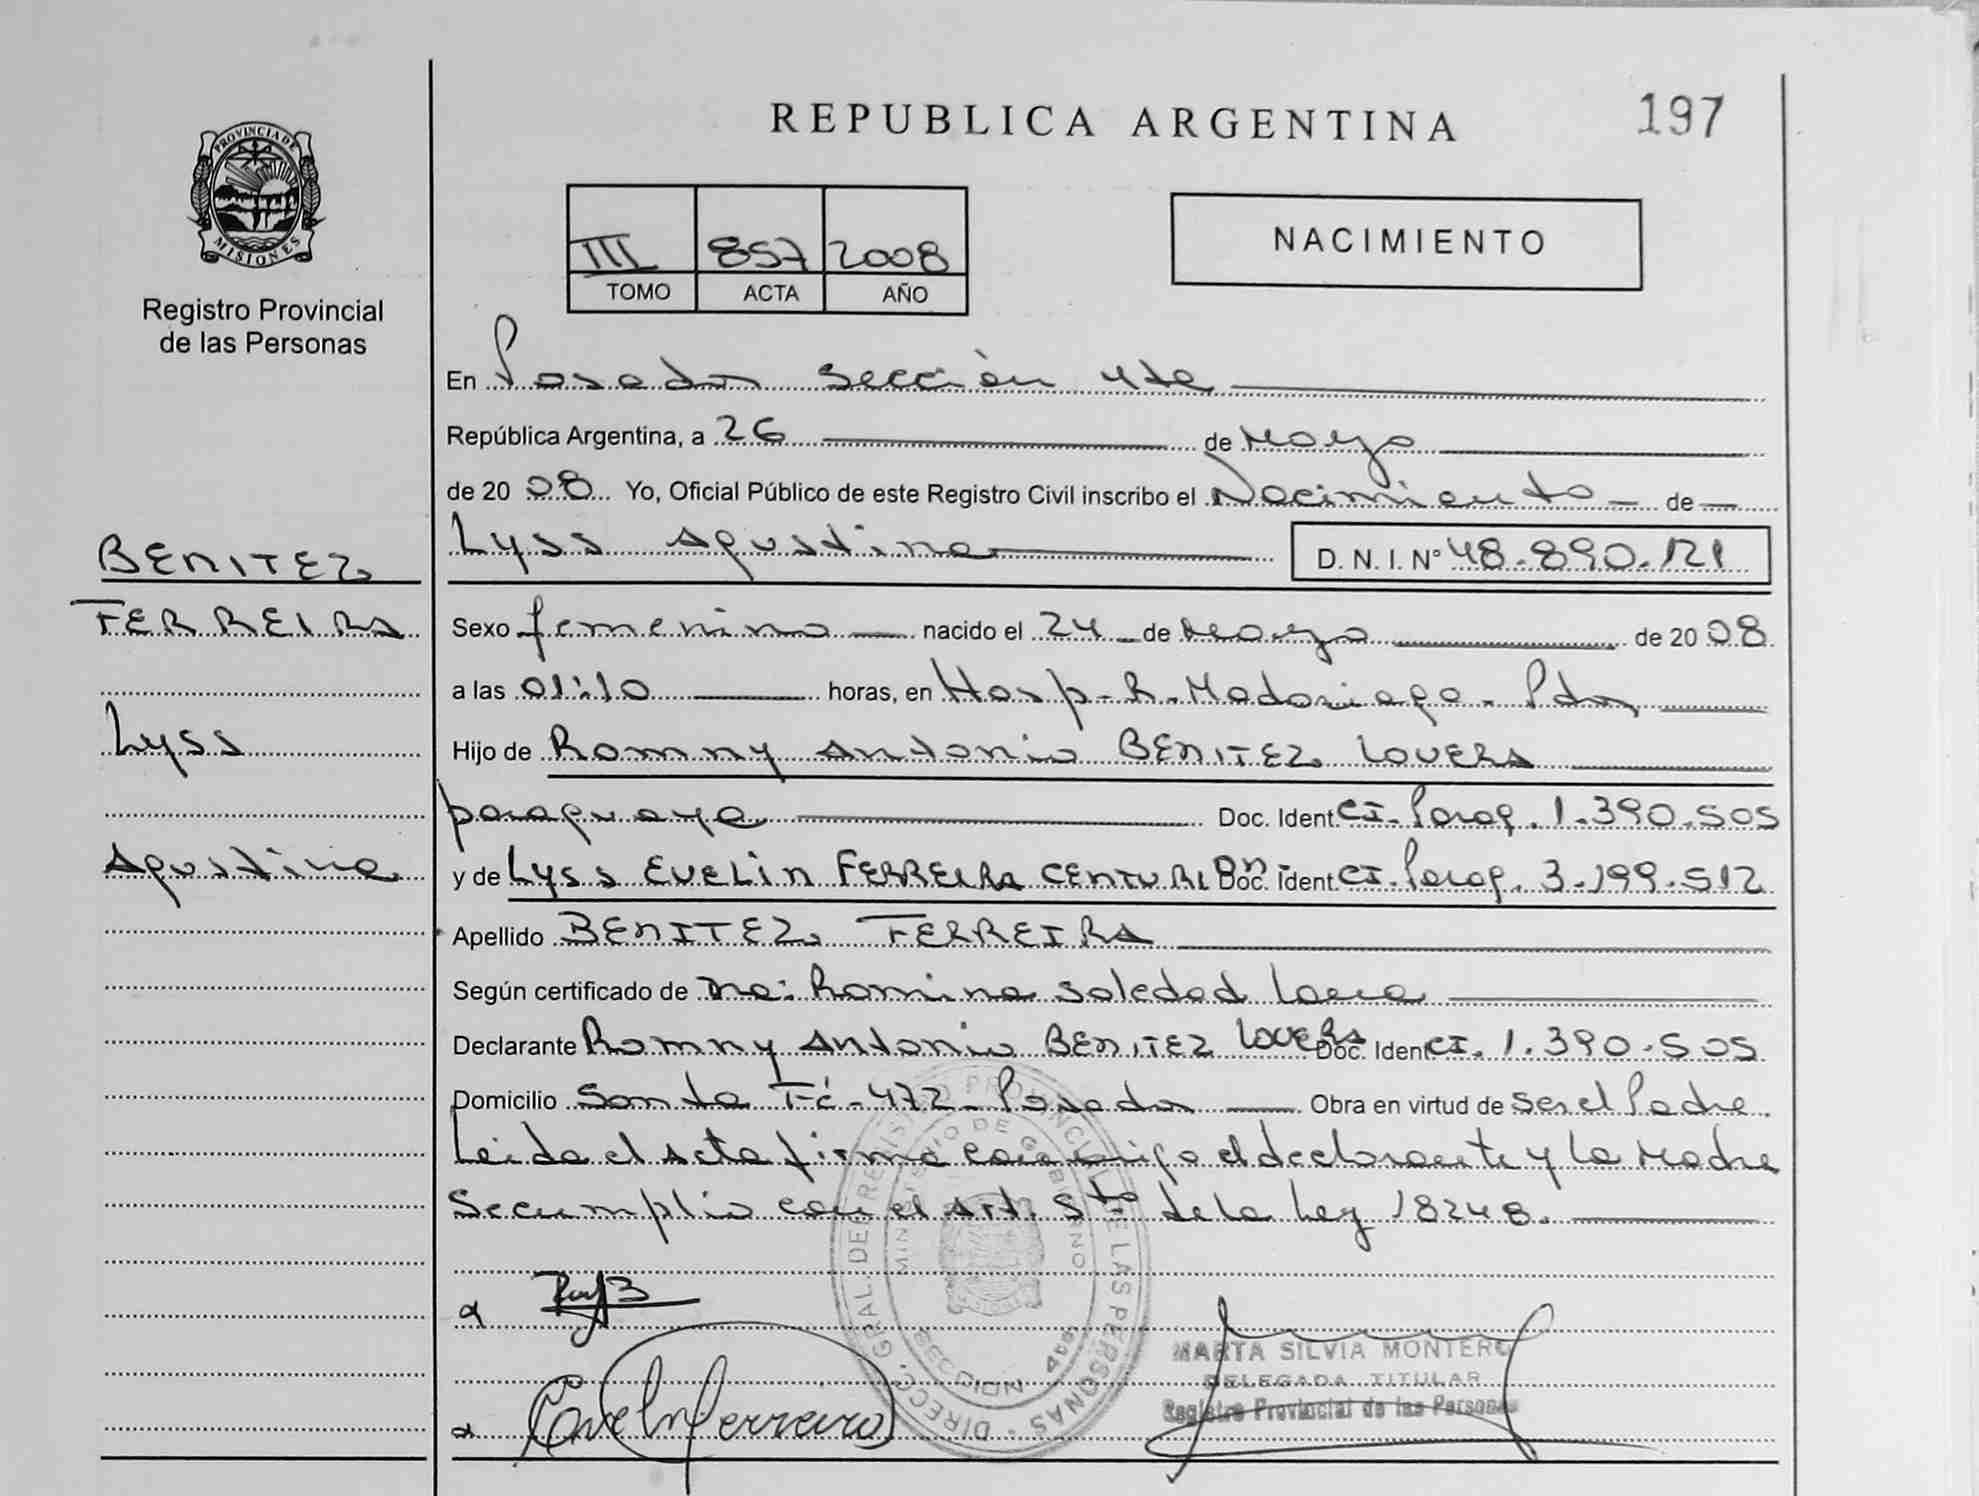 PROVINCIA DE
MISIONES
Registro Provincial
de las Personas
BENITEZ
FERREIRA
Lyss
Agustina
REPUBLICA ARGENTINA
197
III 857 2008
TOMO ACTA AÑO
NACIMIENTO
En Posadas sección 4ta
República Argentina, a 26 de Mayo
de 2008 Yo, Oficial Público de este Registro Civil inscribo el Nacimiento de
Lyss Agustina D. N. I. N° 48.890.121
Sexo femenino nacido el 24 de Mayo de 2008
a las 01:10 horas, en Hosp. R. Madariaga - Pdas
Hijo de Rommy Antonio BENITEZ LOVERA
paraguaya Doc. Ident. CI. Parag. 1.390.505
y de Lyss EVELIN FERREIRA CENTURIÓN Doc. Ident. CI. Parag. 3.199.512
Apellido BENITEZ FERREIRA
Según certificado de Romina Soledad
Declarante Rommy Antonio BENITEZ LOVERA Doc. Ident. CI. 1.390.505
Domicilio Santa Fé - 472 - Posadas Obra en virtud de ser el Padre
Leida el Acta firma conmigo el declarante y la Madre
Se cumplio con el Art. 5to de la Ley 18248.
DIRECC. GRAL. DEL REGISTRO PROVINCIAL DE LAS PERSONAS
MINISTERIO DE GOBIERNO
SECCION 4ta
MARTA SILVIA MONTERO
DELEGADA TITULAR
Registro Provincial de las Personas
Evelin Ferreira